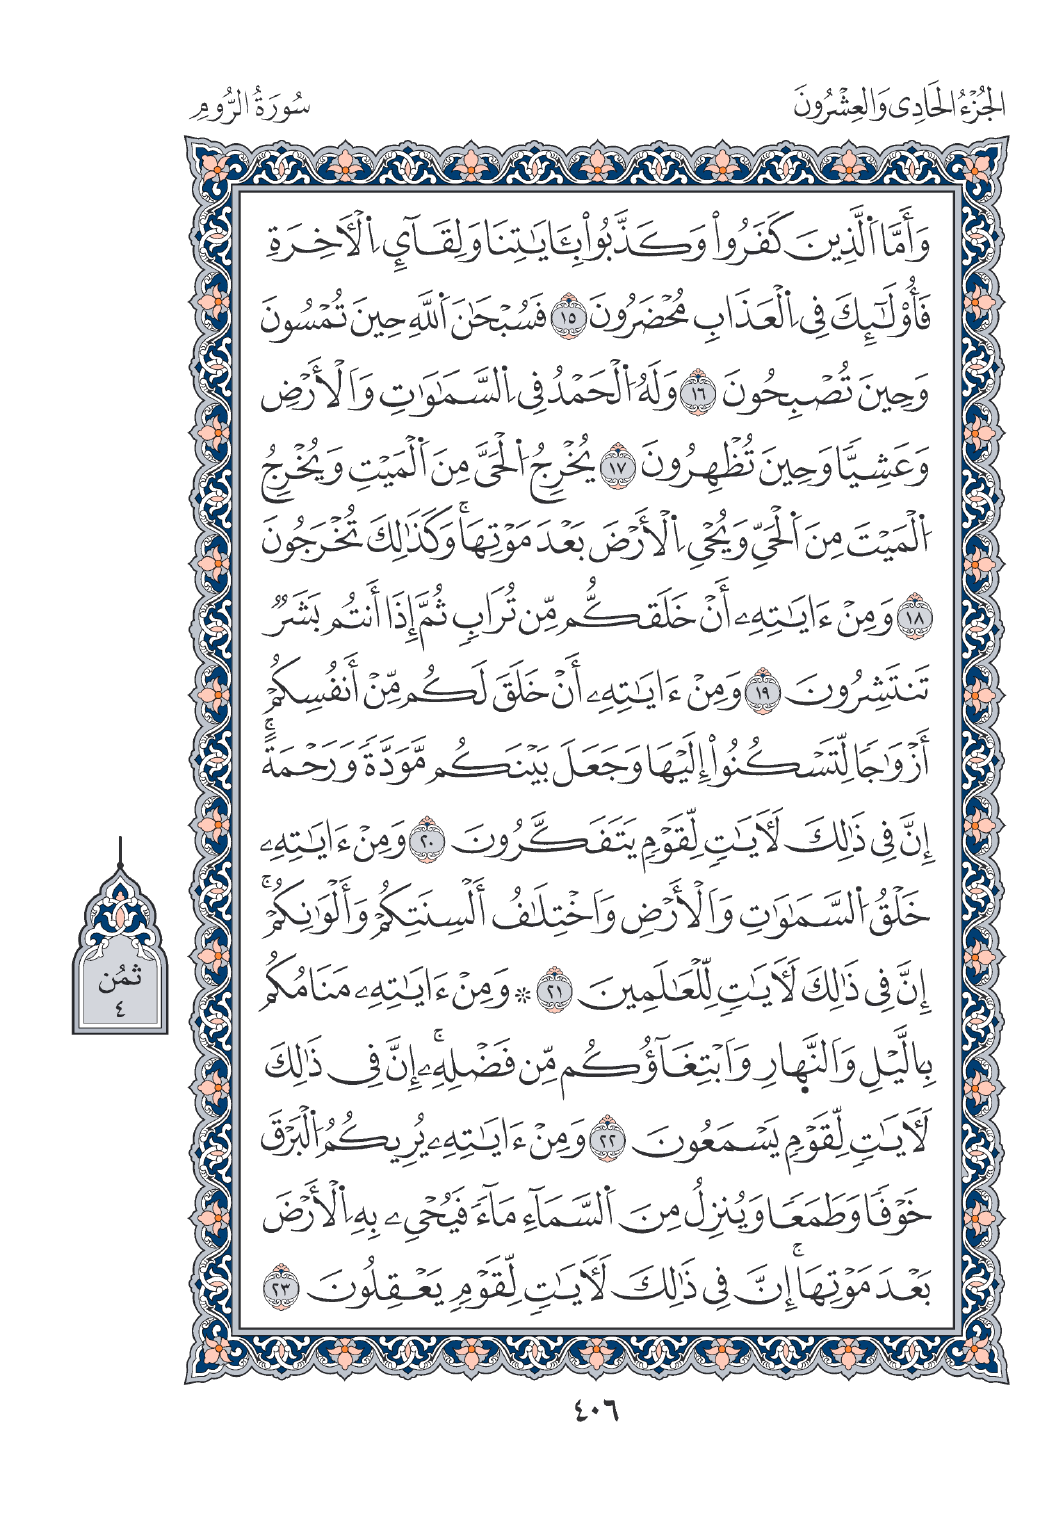 الجُزْءُ الحَادِى وَالعِشْرُونَ
سُورَةُ الرُّومِ
وَأَمَّا اَلَّذِينَ كَفَرُواْ وَكَذَّبُواْ بِـَٔايَٰتِنَا وَلِقَآيِٕ اِ۬لْأٓخِرَةِ
فَأُوْلَٰٓئِكَ فِى اِ۬لْعَذَابِ مُحْضَرُونَ ١٥ فَسُبْحَٰنَ اَ۬للَّهِ حِينَ تُمْسُونَ
وَحِينَ تُصْبِحُونَ ١٦ وَلَهُ اُ۬لْحَمْدُ فِى اِ۬لسَّمَٰوَٰتِ وَالْأَرْضِ
وَعَشِيًّا وَحِينَ تُظْهِرُونَ ١٧ يُخْرِجُ اُ۬لْحَىَّ مِنَ اَ۬لْمَيْتِ وَيُخْرِجُ
اُ۬لْمَيْتَ مِنَ اَ۬لْحَىِّ وَيُحْىِ اِ۬لْأَرْضَ بَعْدَ مَوْتِهَاۚ وَكَذَٰلِكَ تُخْرَجُونَ
١٨ وَمِنْ ءَايَٰتِهِۦ أَنْ خَلَقكُّم مِّن تُرَابٍ ثُمَّ إِذَا أَنتُم بَشَرٌ
تَنتَشِرُونَ ١٩ وَمِنْ ءَايَٰتِهِۦ أَنْ خَلَقَ لَكُم مِّنْ أَنفُسِكُمْ
أَزْوَٰجًا لِّتَسْكُنُواْ إِلَيْهَا وَجَعَلَ بَيْنَكُم مَّوَدَّةً وَرَحْمَةًۚ
إِنَّ فِى ذَٰلِكَ لَأٓيَٰتٍ لِّقَوْمٍ يَتَفَكَّرُونَ ٢٠ وَمِنْ ءَايَٰتِهِۦ
خَلْقُ اُ۬لسَّمَٰوَٰتِ وَالْأَرْضِ وَاخْتِلَٰفُ أَلْسِنَتِكُمْ وَأَلْوَٰنِكُمْۚ
إِنَّ فِى ذَٰلِكَ لَأٓيَٰتٍ لِّلْعَٰلَمِينَ ٢١ * وَمِنْ ءَايَٰتِهِۦ مَنَامُكُم
بِالَّيْلِ وَالنَّهارِ وَابْتِغَآؤُكُم مِّن فَضْلِهِۦۚ إِنَّ فِى ذَٰلِكَ
لَأٓيَٰتٍ لِّقَوْمٍ يَسْمَعُونَ ٢٢ وَمِنْ ءَايَٰتِهِۦ يُرِيكُمُ اُ۬لْبَرْقَ
خَوْفًا وَطَمَعًا وَيُنزِلُ مِنَ اَ۬لسَّمَآءِ مَآءً فَيُحْىِۦ بِهِ اِ۬لْأَرْضَ
بَعْدَ مَوْتِهَاۚ إِنَّ فِى ذَٰلِكَ لَأٓيَٰتٍ لِّقَوْمٍ يَعْقِلُونَ ٢٣
ثُمُن
٤
٤٠٦